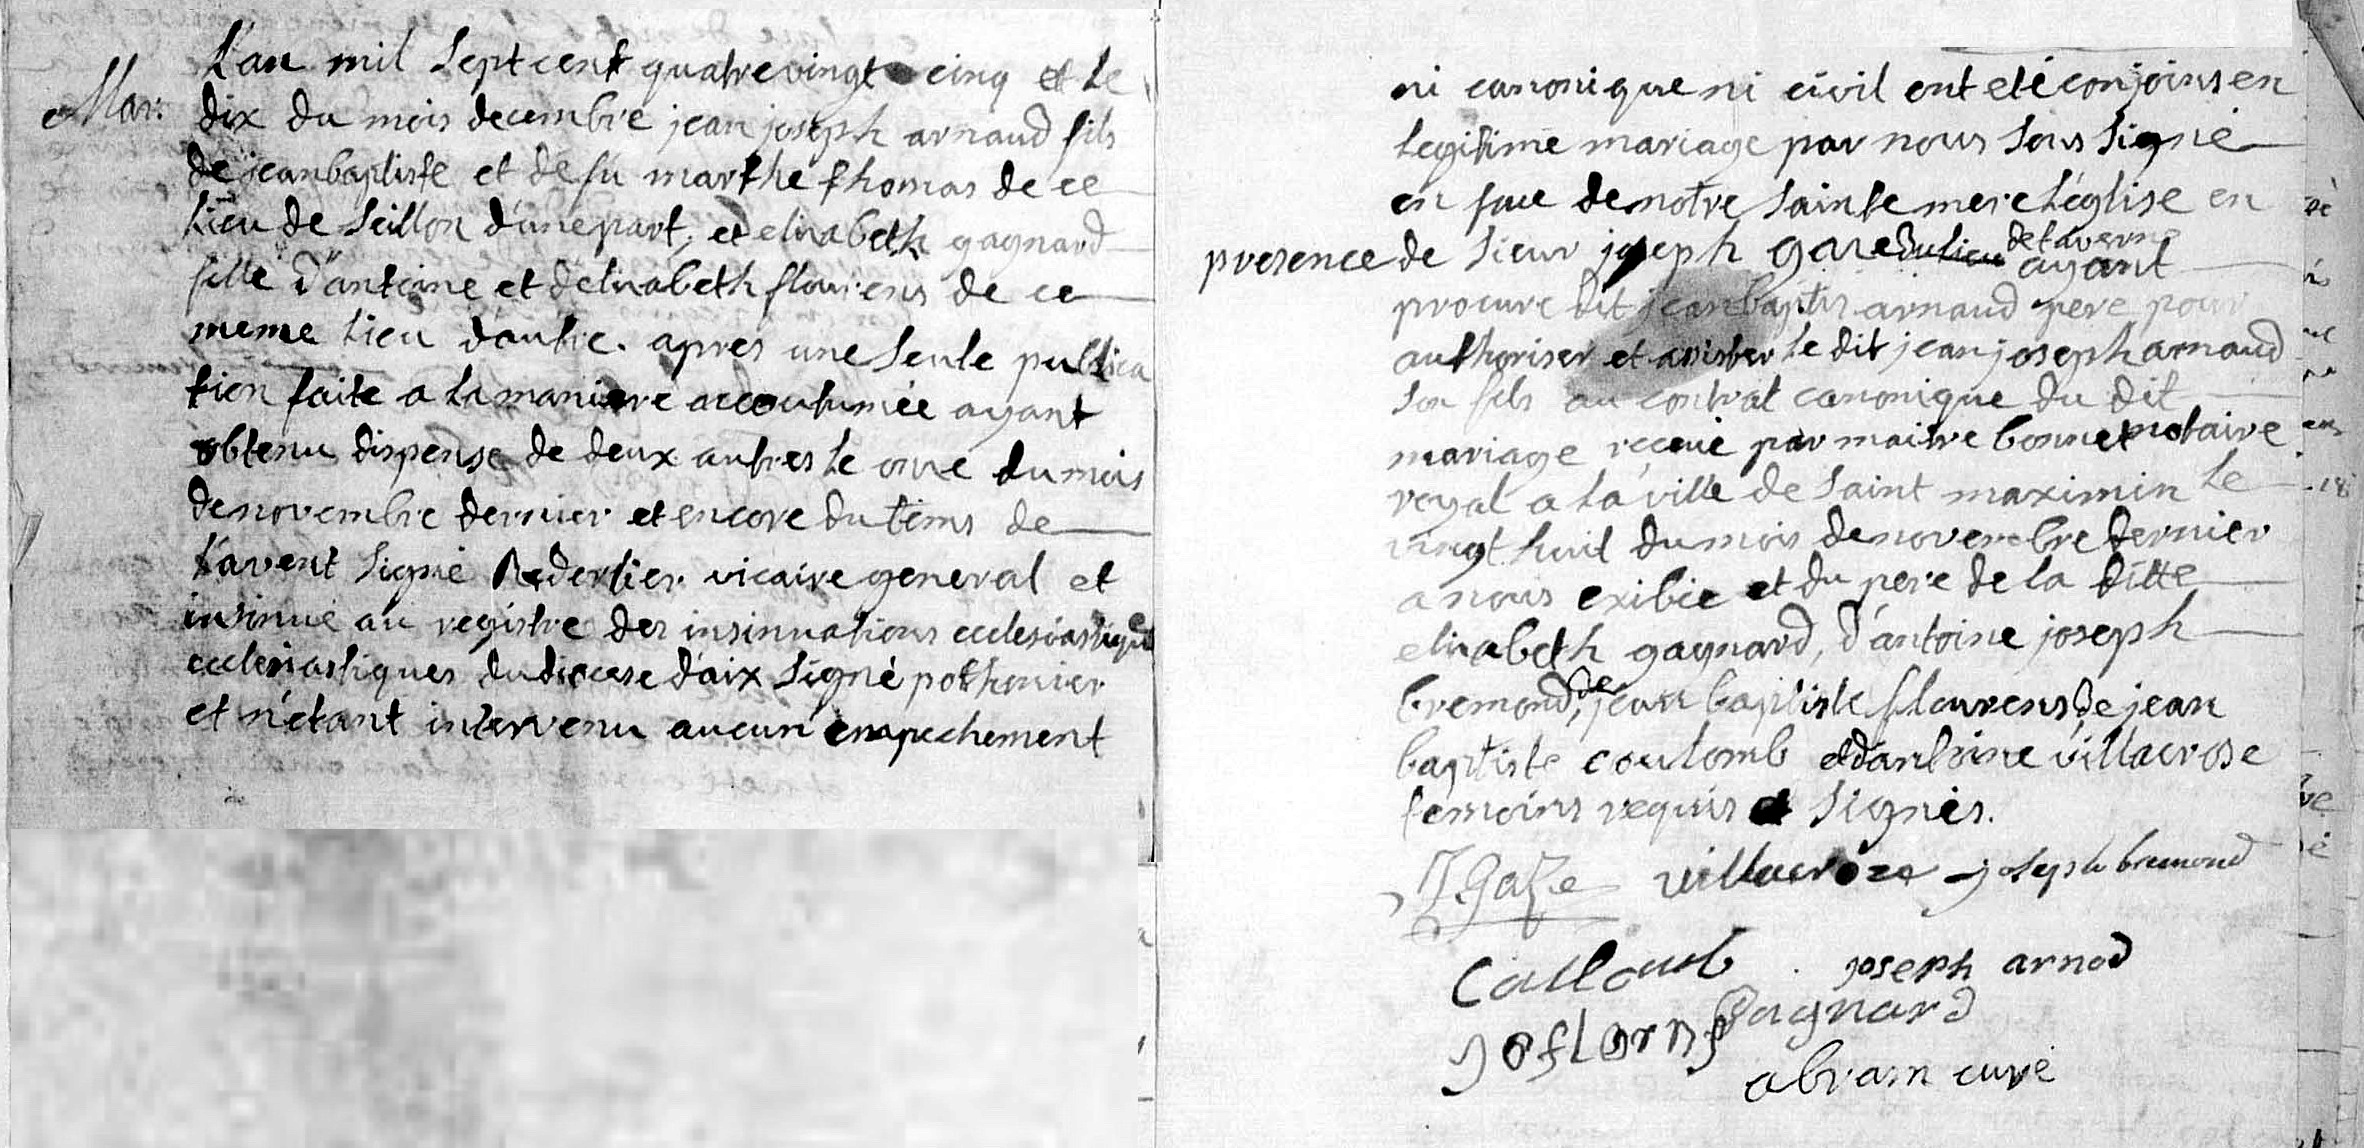 Mar:
L'an mil sept cent quatre vingt cinq et le
dix du mois decembre jean joseph arnaud fils
de jean baptiste et de fu marthe thomas de ce
lieu de Seillon d'une part, et elisabeth gagnard
fille d'antoine et d'elisabeth flourens de ce
meme lieu dautre. apres une seule publica
tion faite a la maniere accoutumée ayant
obtenu dispense de deux autres le onze du mois
de novembre dernier et encore du tems de
l'avent signé vicaire general et
insinué au registre des insinuations ecclesiastiques
ecclesiastiques du diocese d'aix signé pothonier
et n'etant intervenu aucun empechement
ni canonique ni civil ont eté conjoins en
legitime mariage par nous sous signé
en face de notre sainte mere l'église en
de taverne
presence de sieur joseph gaze du lieu ayant
procure dit jean baptis arnaud pere pour
authoriser et assister le dit jean joseph arnaud
son fils au contrat canonique du dit
mariage recüe par maitre bonnet notaire
royal a la ville de saint maximin le
vingt huit du mois de novembre dernier
a nous exibée et du pere de la ditte
elisabeth gagnard, d'antoine joseph
bremond, de jean baptiste flourens, de jean
baptiste coulomb et d'antoine villacrose
temoins requis et signés.
J Gaze villacroze joseph bremond
Collomb joseph arnod
Gagnard
abram curé